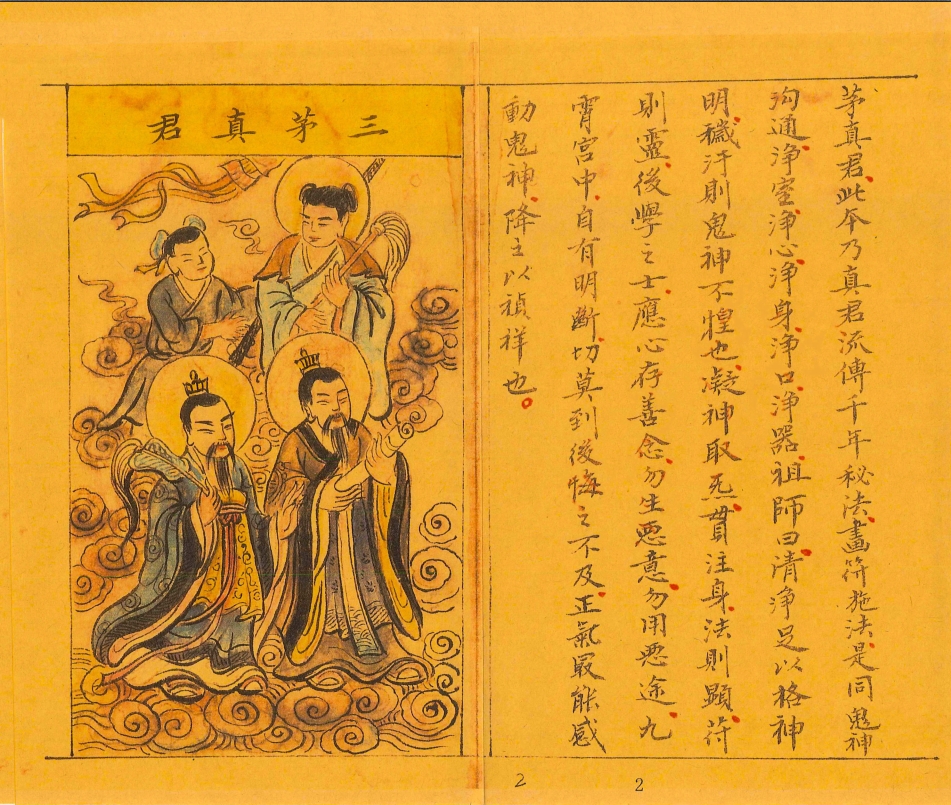 茅真君、此夲乃真君流傳千年秘法、畫符施法、是同鬼神
沟通、浄室、浄心、浄身、浄口、浄器、祖師曰、清浄足以格神
明、穢汙則鬼神不惶也、凝神取炁、貫注身、法則顯、符
則靈、後學之士、應心存善念、勿生悪意、勿用悪途、九
霄宮中、自有明斷、切莫到後悔之不及、正氣最能感
動鬼神、降之以禎祥也。
三茅真君
2
2